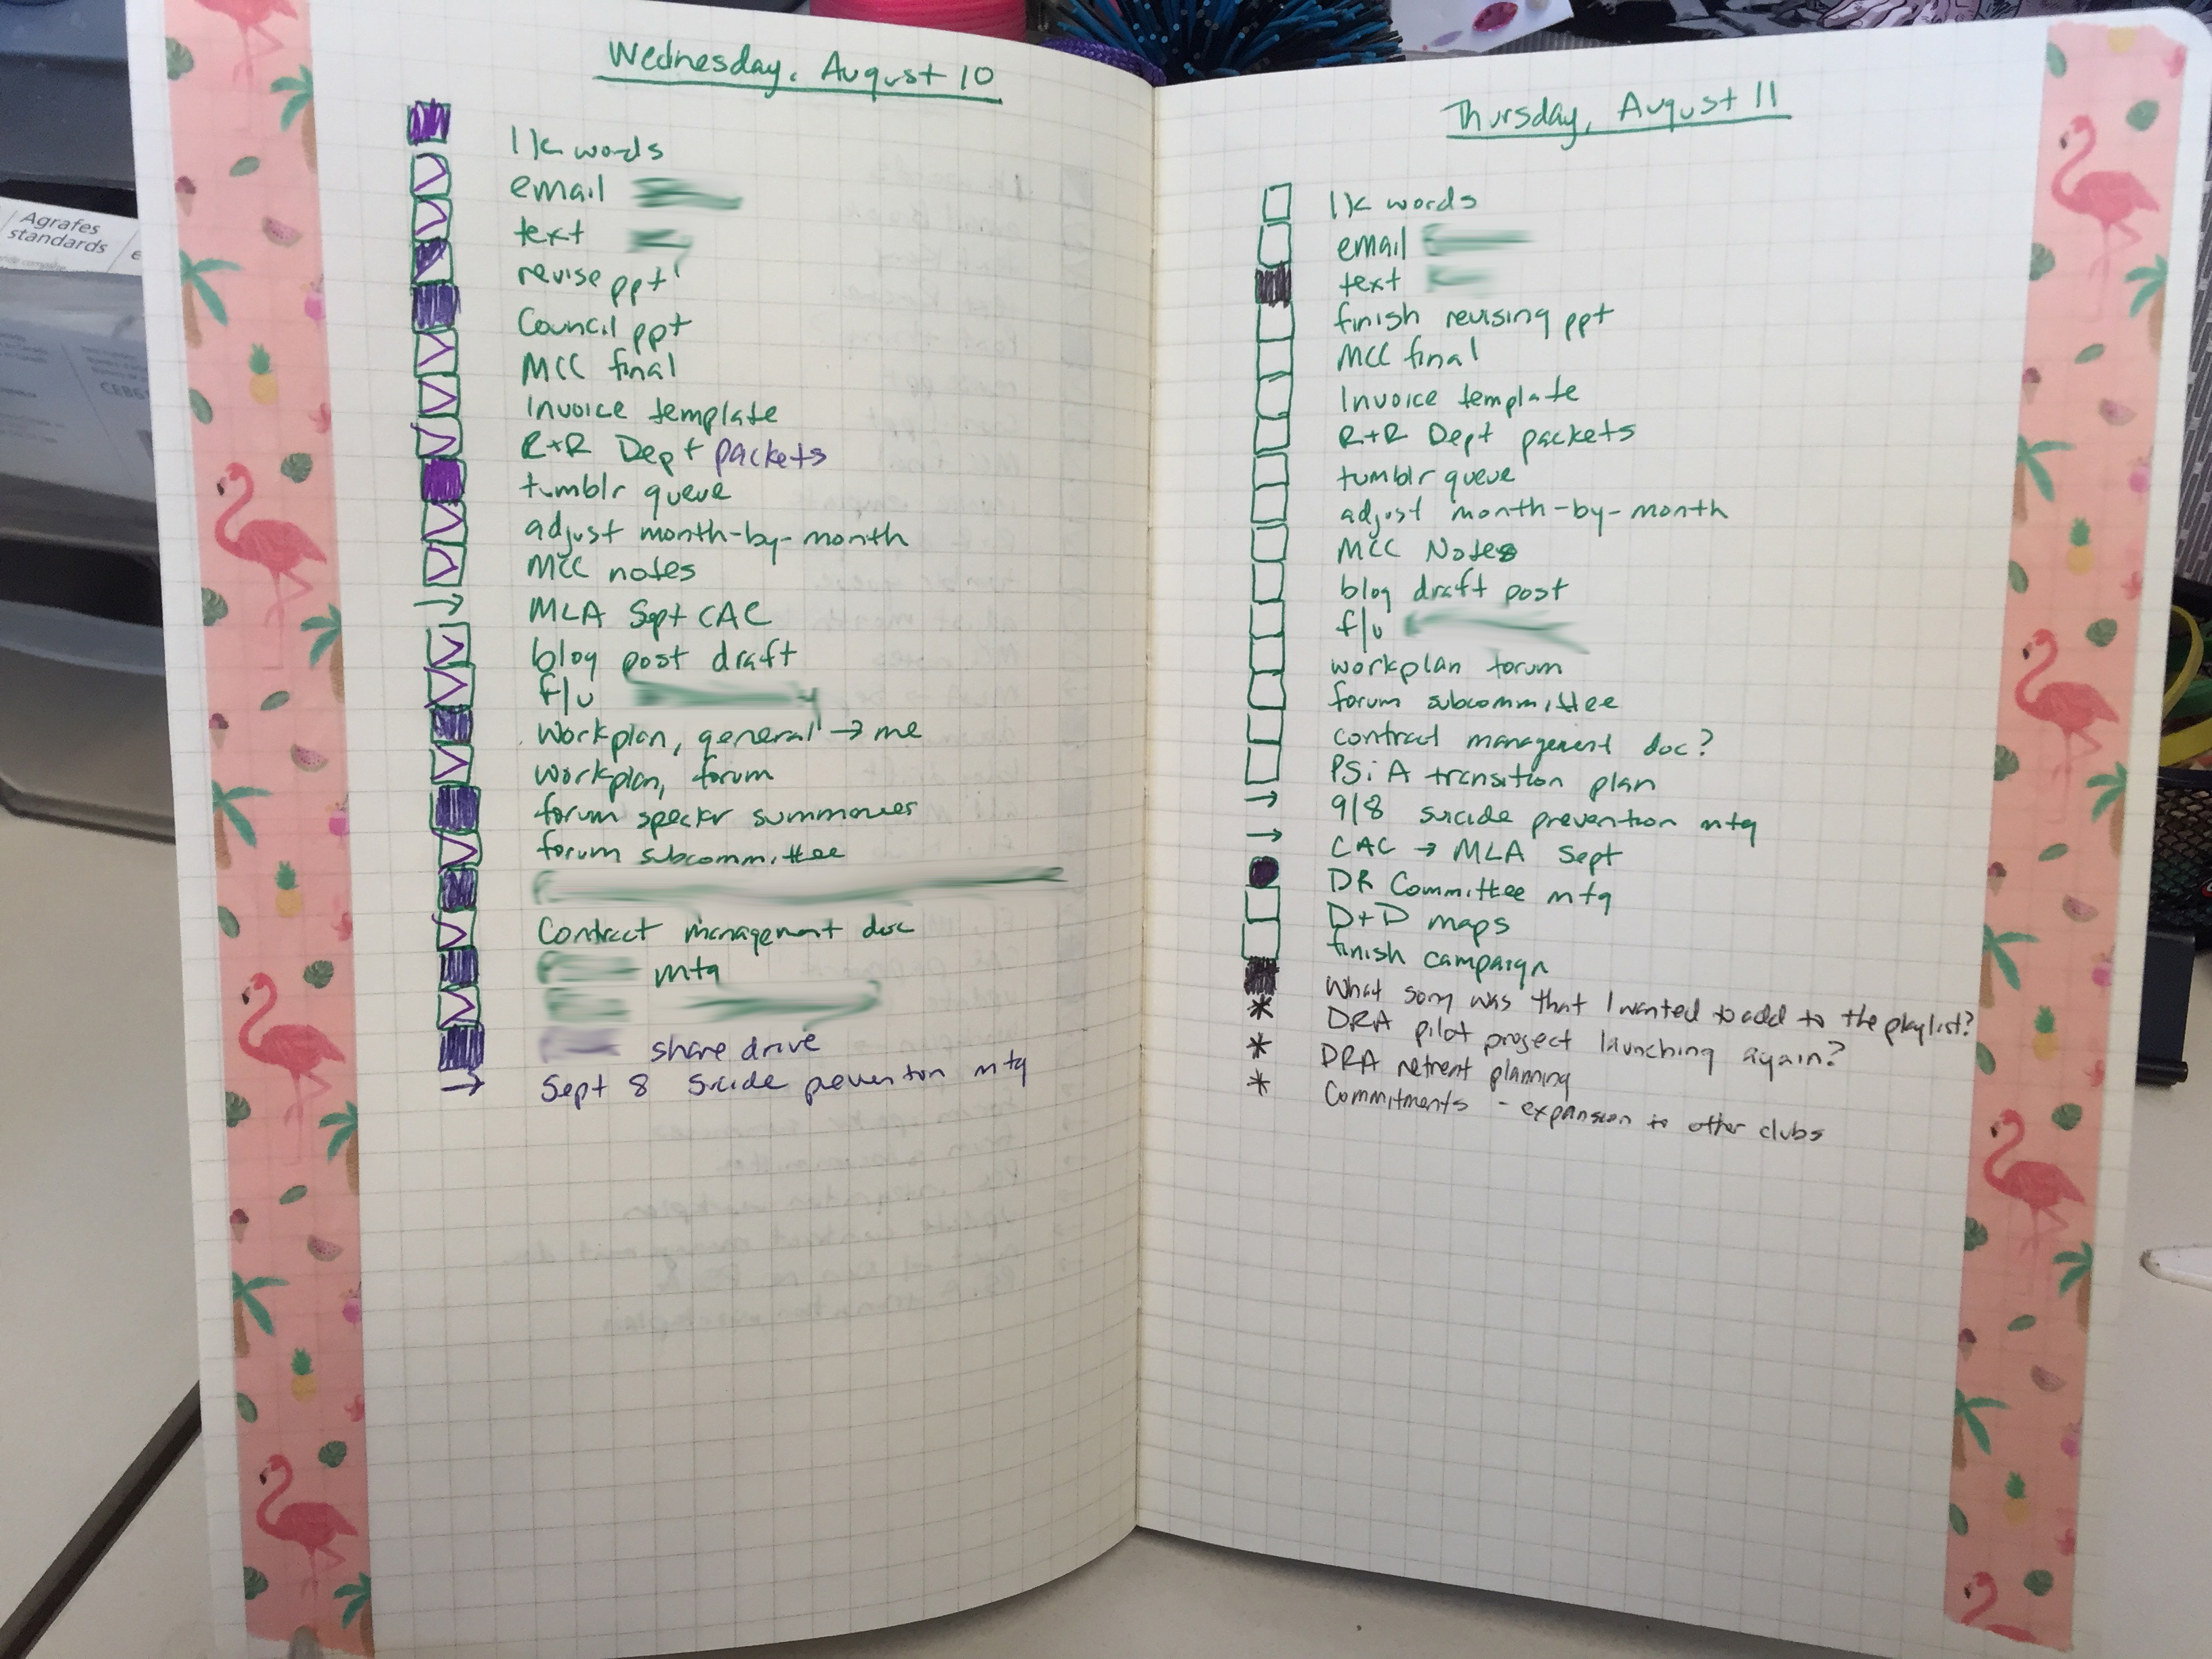 Agrafes
standards
Wednesday, August 10
1k words
email
text
revise ppt
Council ppt
MCC final
Invoice template
R+R Dept packets
tumblr queue
adjust month-by-month
MCC notes
→ MLA Sept CAC
blog post draft
f/u
Workplan, general → me
workplan, forum
forum speakr summaries
forum subcommittee
Contract management doc
mtg
share drive
→ Sept 8 Suicide prevention mtg
Thursday, August 11
1k words
email
text
finish revising ppt
MCC final
Invoice template
R+R Dept packets
tumblr queue
adjust month-by-month
MCC Notes
blog draft post
f/u
workplan forum
forum subcommittee
contract management doc?
PSiA transition plan
→ 9/8 suicide prevention mtg
→ CAC → MLA Sept
DR Committee mtg
D+D maps
finish campaign
What song was that I wanted to add to the playlist?
* DRA pilot project launching again?
* DRA retreat planning
* Commitments - expansion to other clubs